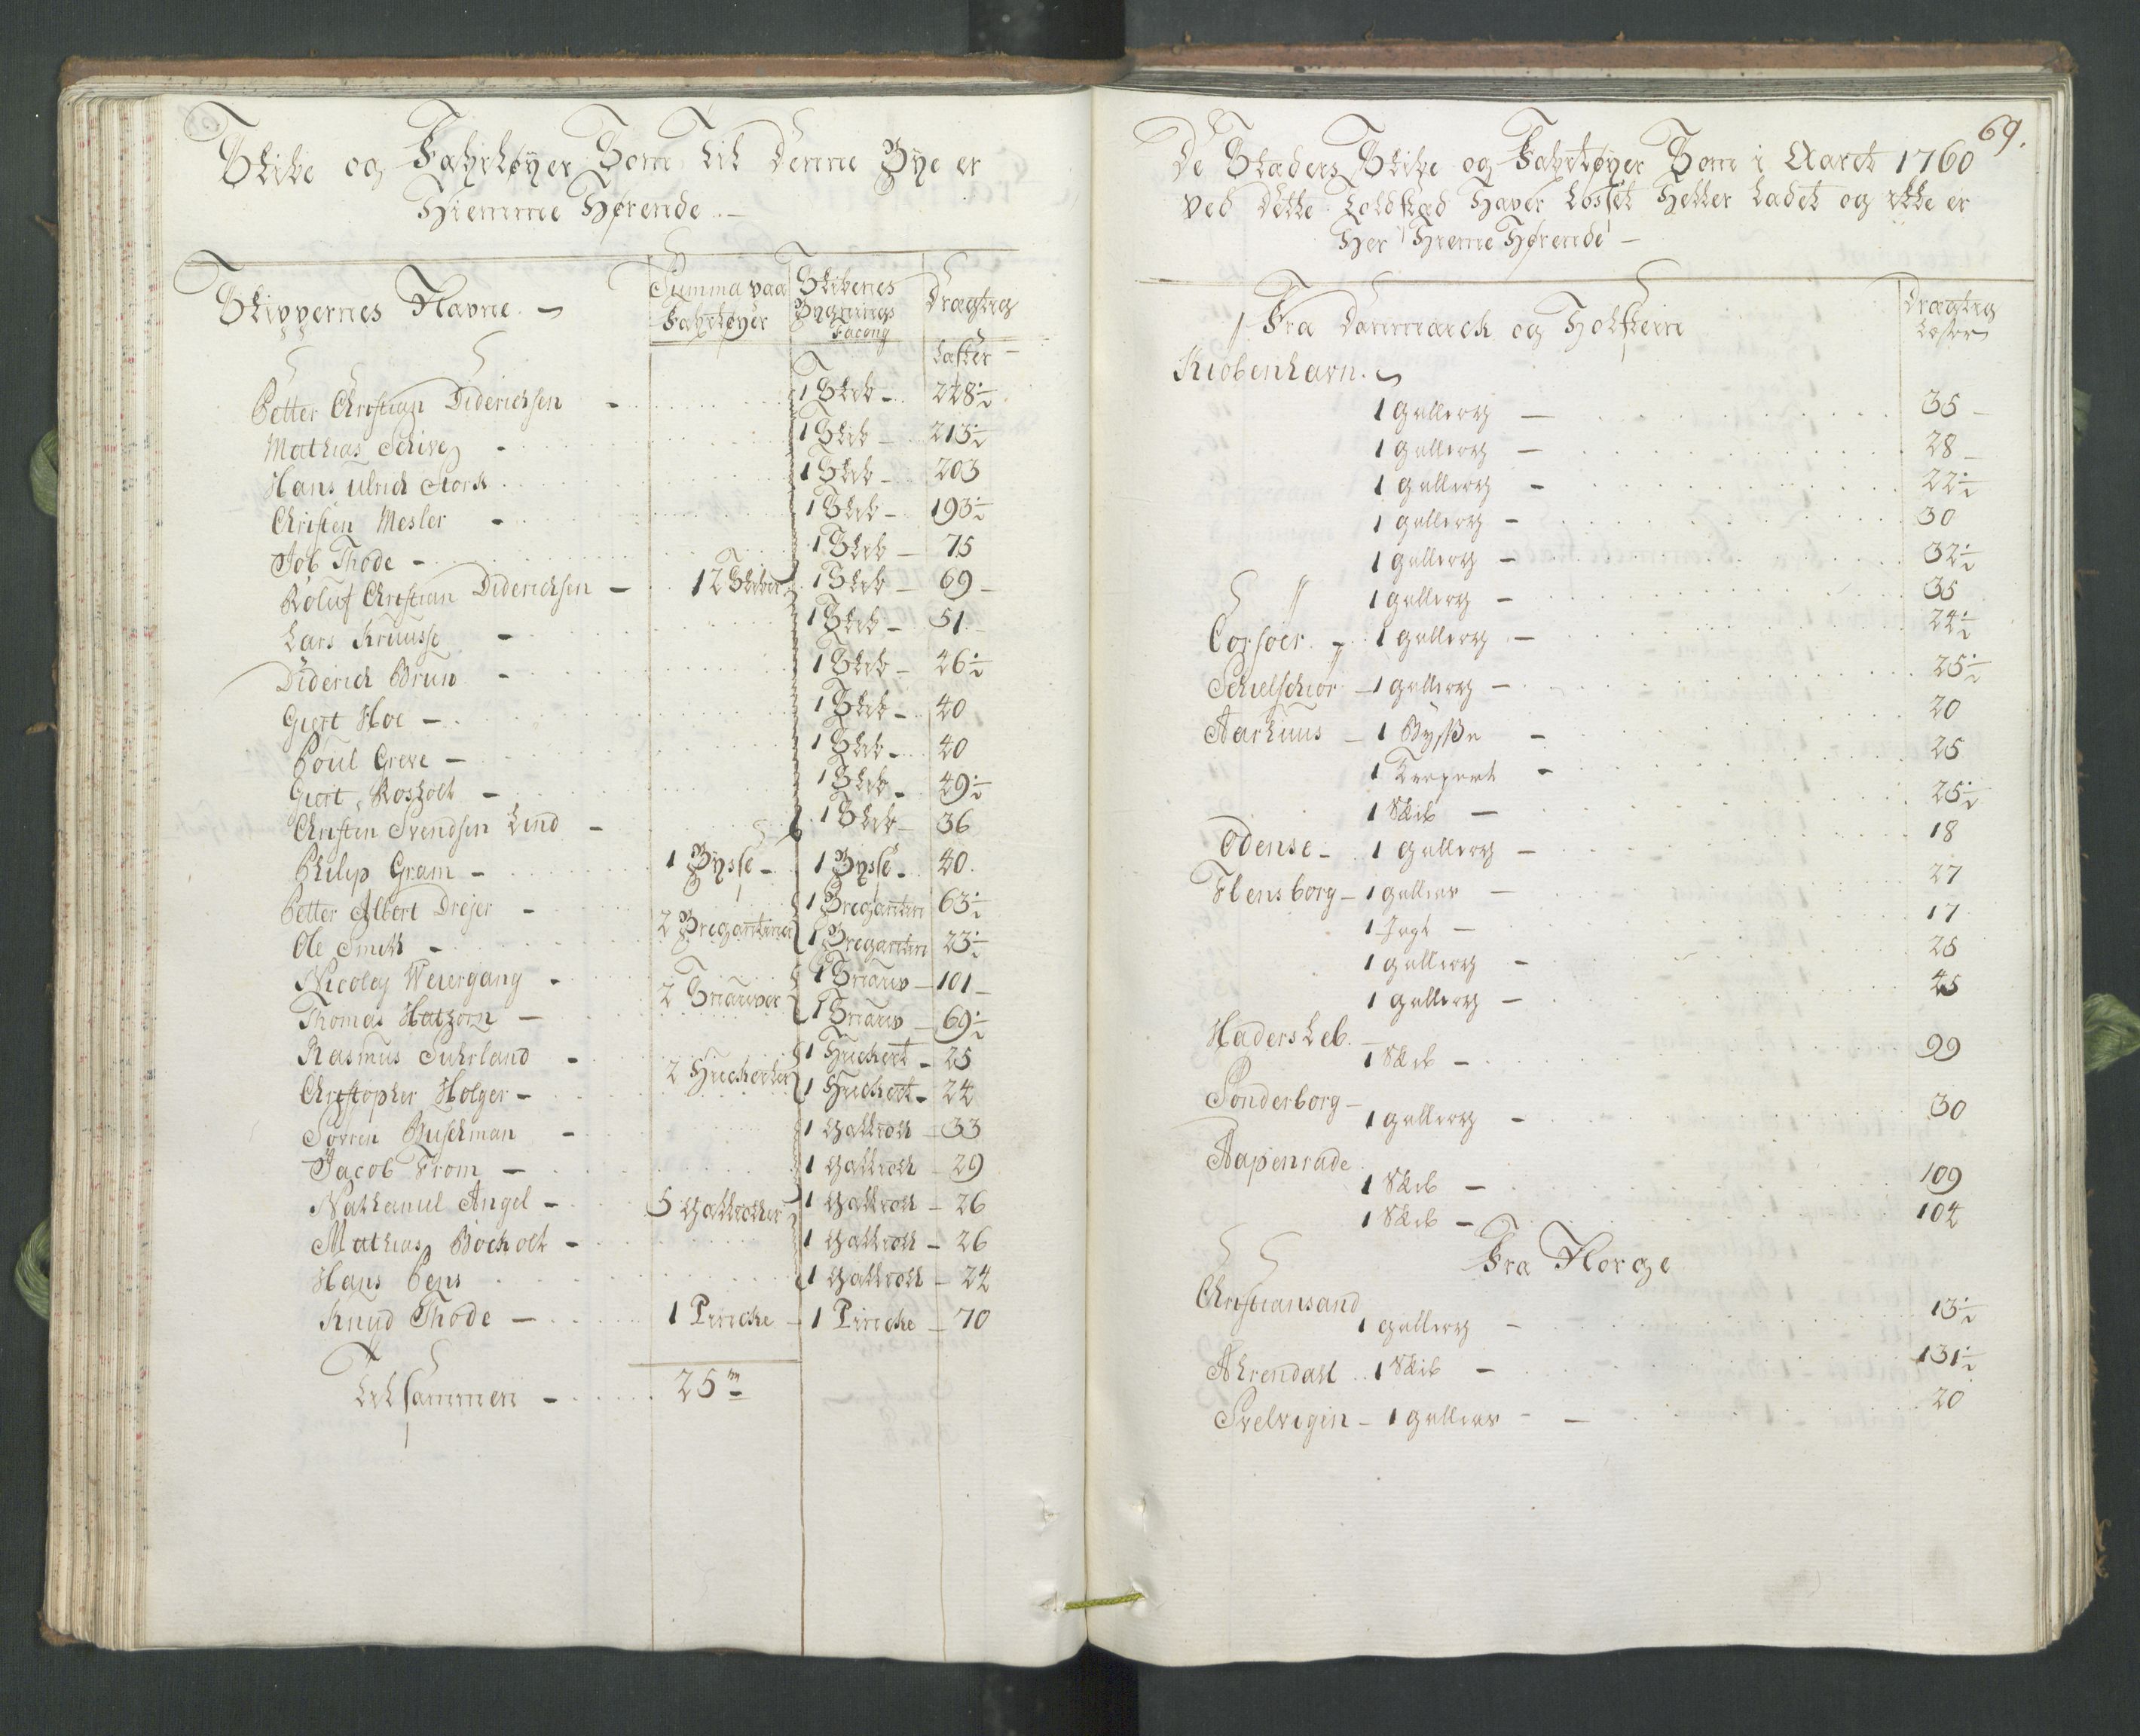 Skibe og Fahrtøyer Som til denne Bye er
Hiemme Hørende
Skippernes Navne
Summa paa Fahrtøyer
Skibenes Bygnings Facong
Drægtig Læster
Petter Christian Diderichsen 1 Skib 228½
Mathias Schive 1 Skib 213½
Hans Ulrich Storch 1 Skib 203
Christen Mesler 1 Skib 193½
Job Thode 1 Skib 75
Roluf Christian Diderichsen 12 Skiber 1 Skib 69
Lars Kruusse 1 Skib 51
Diderich Brun 1 Skib 46½
Giert Hoe 1 Skib 40
Poul Greve 1 Skib 40
Giert Rosholt 1 Skib 49½
Christen Svendsen Lind 1 Skib 36
Philip Gram 1 Bysse 1 Bysse 40
Petter Albert Drejer 1 Bregantin 63½
Ole Smith 2 Bregantiner 1 Bregantin 23½
Nicolay Weiergang 1 Snauv 101
Thomas Hatzorn 2 Snauver 1 Snauv 69½
Rasmus Suhrland 1 Huchert 25
Christopher Holger 2 Hucherter 1 Huchert 24
Sørren Buschman 1 Gallioth 33
Jacob From 1 Gallioth 29
Nathaniel Angel 5 Galliother 1 Gallioth 26
Mathias Bocholt 1 Gallioth 26
Hans Pens 1 Gallioth 24
Knud Thode 1 Pincke 1 Pincke 70
Tilsammen 25
69.
De Stæders Skibe og Fahrtøyer Som i Aaret 1760
ved dette Toldstæd Haver Losset Heller Ladet og ikke er
Her Hieme Hørende
Fra Danmarck og Holsteen
Drægtig Læster
Kiøbenhavn
1 Galliorth 35
1 Galliorth 28
1 Galliorth 22½
1 Galliorth 30
1 Galliorth 32½
1 Galliorth 35
Corsøer 1 Galliorth 24½
Schielschiør 1 Galliorth 25½
Aarhuus 1 Bysse 20
1 Krejert 25
1 Skib 25½
Odense 1 Galliorth 18
Flensborg 1 Gallias 27
1 Jagt 17
1 Galliorth 25
1 Galliorth 45
Hadersleb
1 Skib 99
Sønderborg
1 Galliorth 30
Aapenrade
1 Skib 109
1 Skib 104
Fra Norge
Christiansand
1 Galliorth 13½
Ahrendahl 1 Skib 131½
Svelvigen 1 Gallias 20